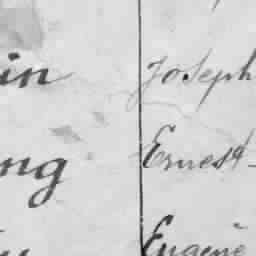 in Joseph
ng Ernest
Eugene